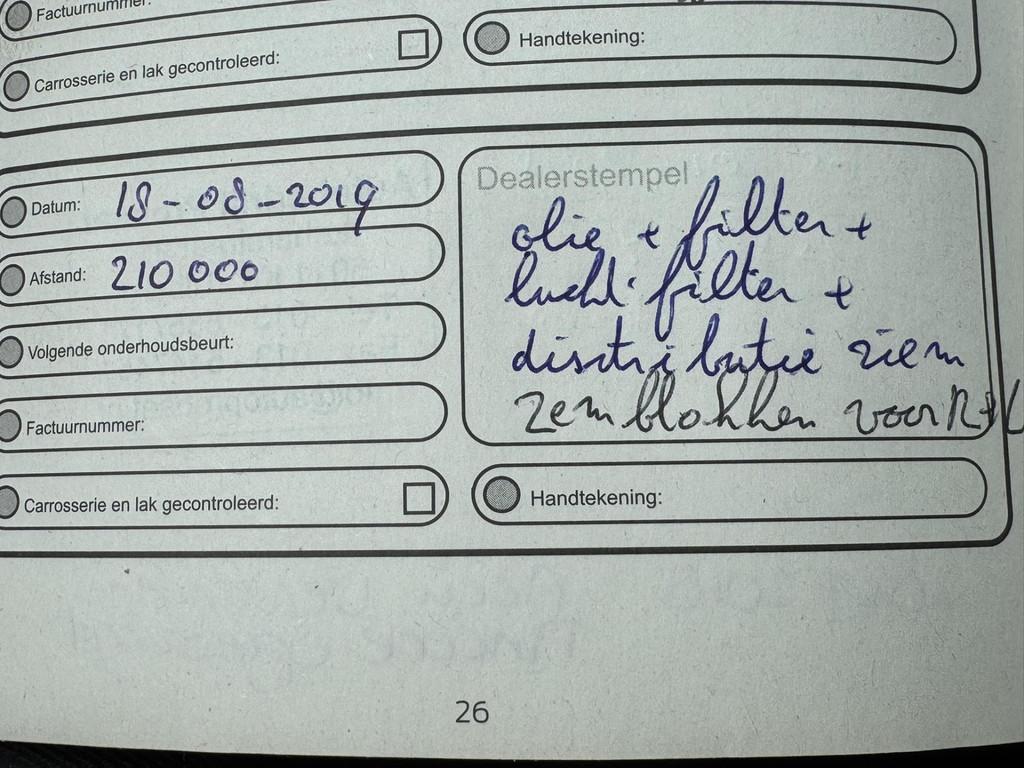 Factuurnummer:
Carrosserie en lak gecontroleerd:
Handtekening:
Datum: 18-08-2019
Afstand: 210 000
Volgende onderhoudsbeurt:
Factuurnummer:
Carrosserie en lak gecontroleerd:
Dealerstempel
olie + filter +
lucht filter +
distributie riem
remblokken voor R+L
Handtekening:
26